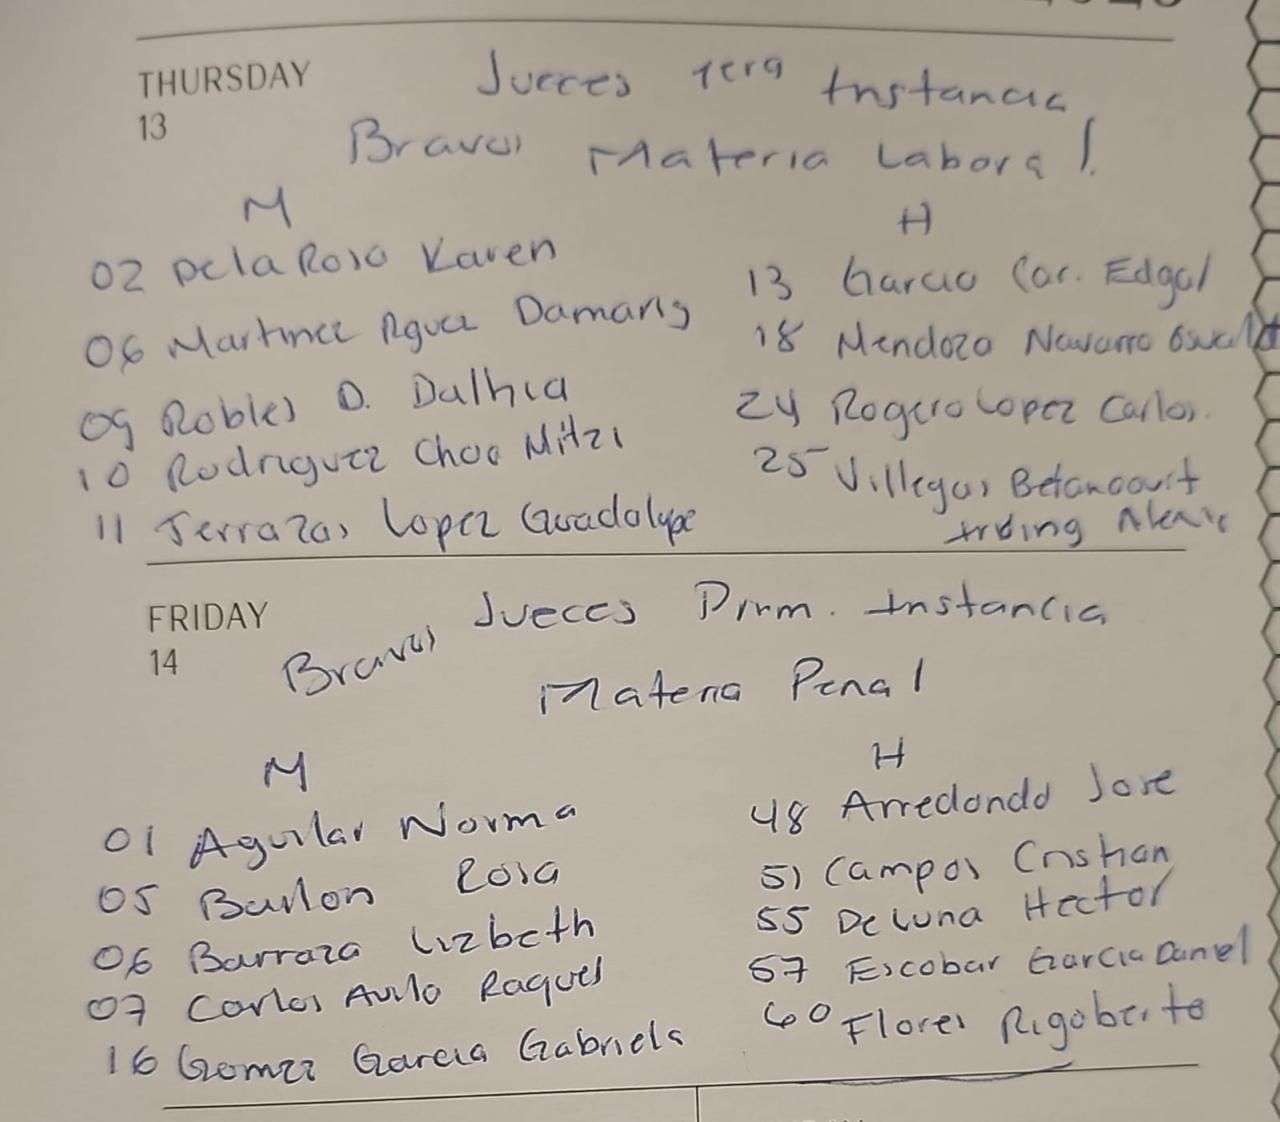 THURSDAY
13
Jueces 1era Instancia
Bravos Materia Laboral
M
02 De la Rosa Karen
06 Martinez Rguez Damaris
09 Robles D. Dalhia
10 Rodriguez Chao Mitzi
11 Terrazas Lopez Guadalupe
H
13 Garcia Car. Edgal
18 Mendoza Navarro
24 Rogero Lopez Carlos.
25 Villegas Betancourt
Irbing
FRIDAY
14
Bravos Jueces Prim. Instancia
Materia Penal
M
01 Aguilar Norma
05 Bailon Rosa
06 Barraza Lizbeth
07 Carlos Avila Raquel
16 Gomez Garcia Gabriela
H
48 Arredondo Jose
51 Campos Cristian
55 De Luna Hector
57 Escobar Garcia Daniel
60 Flores Rigoberto